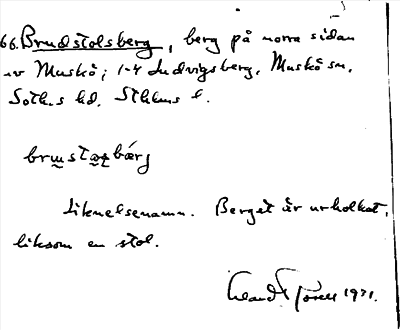 66. Brudstolsberg, berg på norra sidan
av Muskö; 1-4 Ludvigsberg, Muskö sn,
Soth.s hd, Sthlms l.
Liknelsenamn. Berget är urholkat,
liksom en stol.
1971.